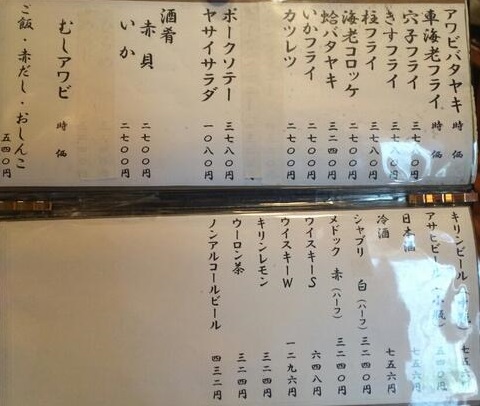 アワビバタヤキ 時価
車海老フライ 時価
穴子フライ 三七八〇円
きすフライ 三七八〇円
柱フライ 三七八〇円
海老コロッケ 二七〇〇円
蛤バタヤキ 三二四〇円
いかフライ 二七〇〇円
カツレツ 二七〇〇円
ポークソテー 三七八〇円
ヤサイサラダ 一〇八〇円
酒肴
赤貝 二七〇〇円
いか 二七〇〇円
むしアワビ 時価
ご飯・赤だし・おしんこ 五四〇円
キリンビール
アサヒビール（小瓶） 五四〇円
日本酒 七五六円
冷酒 七五六円
シャブリ 白（ハーフ） 三二四〇円
メドック 赤（ハーフ） 三二四〇円
ウイスキーS 六四八円
ウイスキーW 一二九六円
キリンレモン 三二四円
ウーロン茶 三二四円
ノンアルコールビール 四三二円